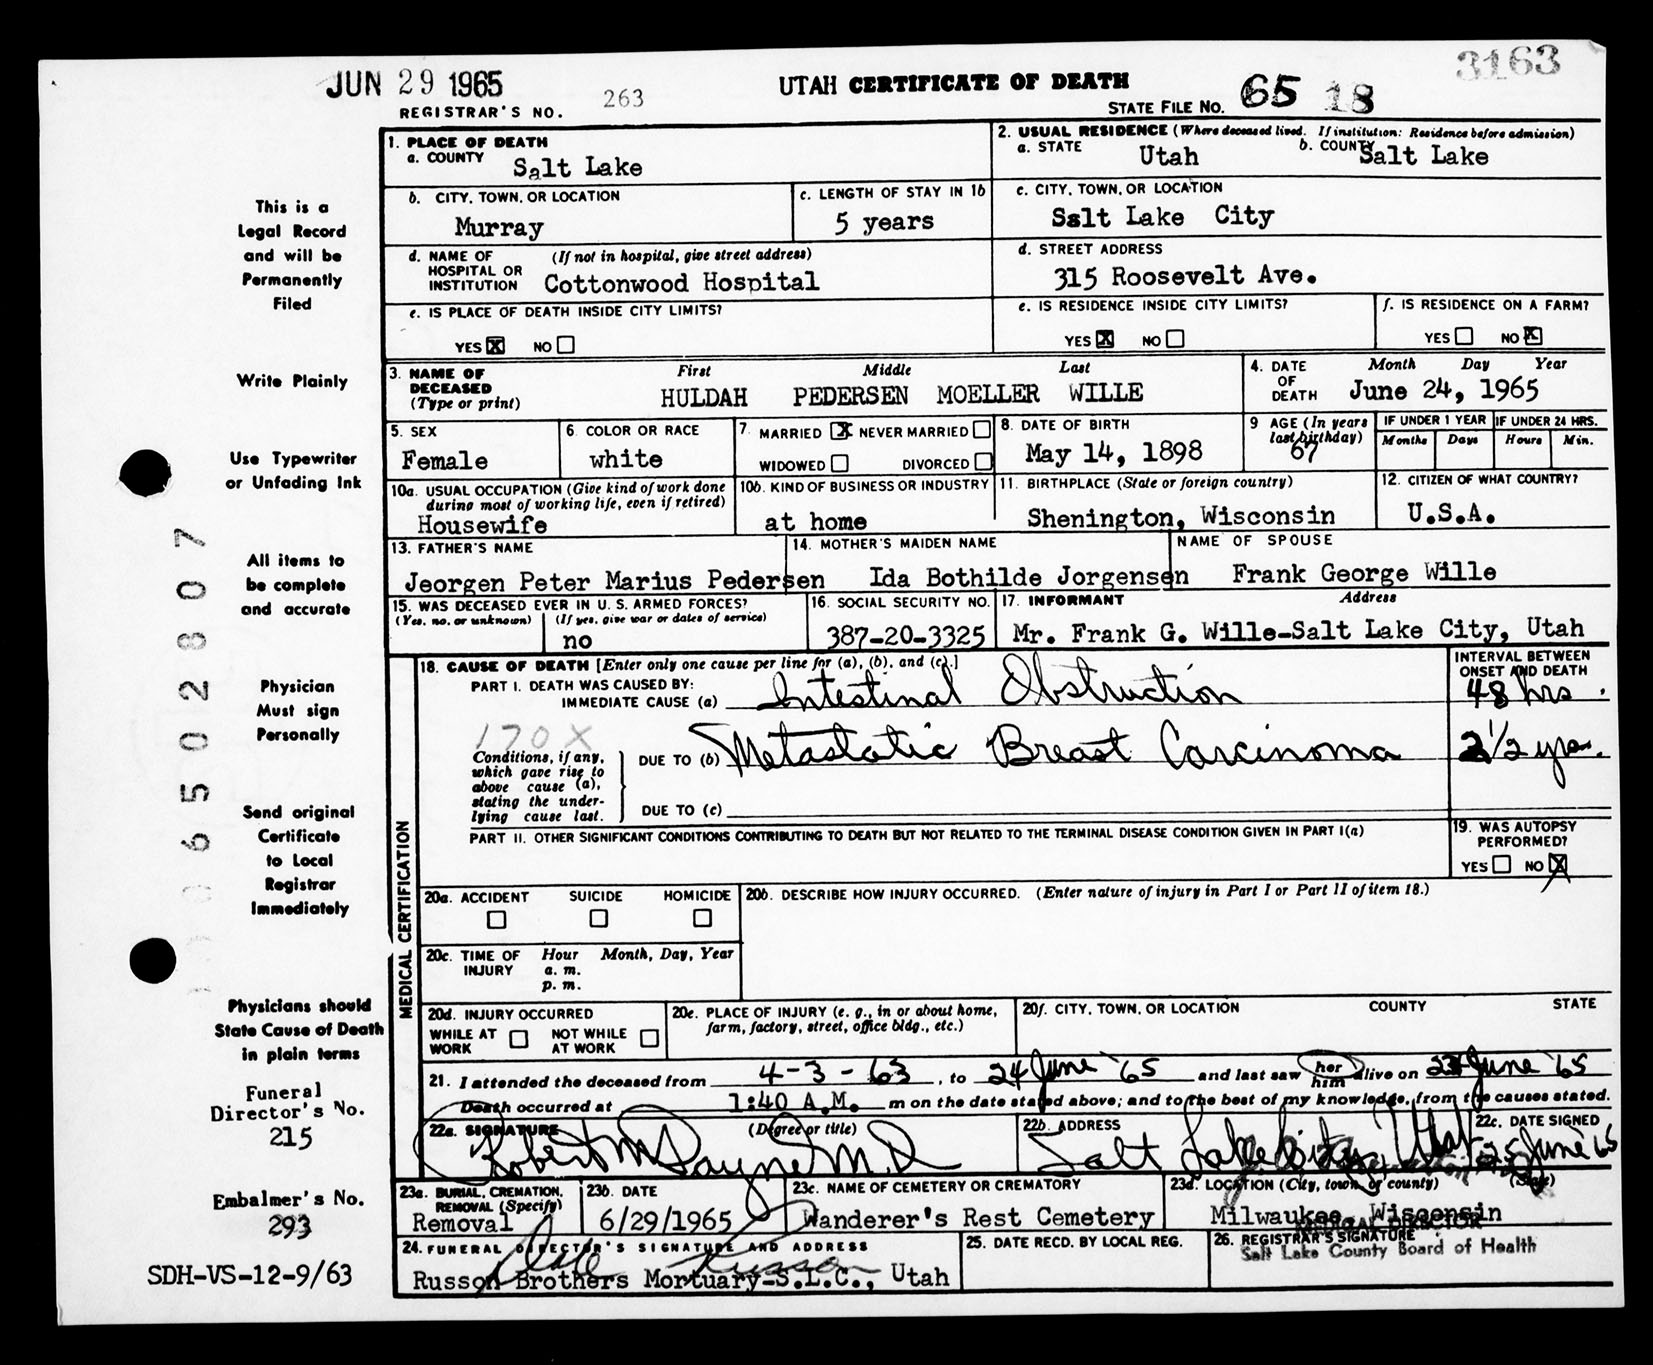 JUN 29 1965
3163
UTAH CERTIFICATE OF DEATH
REGISTRAR'S NO. 263
STATE FILE NO. 65 18
1. PLACE OF DEATH
a. COUNTY Salt Lake
2. USUAL RESIDENCE (Where deceased lived. If institution: Residence before admission)
a. STATE Utah b. COUNTY Salt Lake
b. CITY, TOWN, OR LOCATION Murray
c. LENGTH OF STAY IN 1b 5 years
c. CITY, TOWN, OR LOCATION Sslt Lake City
d. NAME OF HOSPITAL OR INSTITUTION (If not in hospital, give street address) Cottonwood Hospital
d. STREET ADDRESS 315 Roosevelt Ave.
e. IS PLACE OF DEATH INSIDE CITY LIMITS?
YES X NO
e. IS RESIDENCE INSIDE CITY LIMITS?
YES X NO
f. IS RESIDENCE ON A FARM?
YES NO X
3. NAME OF DECEASED (Type or print)
First Middle Last
HULDAH PEDERSEN MOELLER WILLE
4. DATE OF DEATH Month Day Year
June 24, 1965
5. SEX Female
6. COLOR OR RACE white
7. MARRIED X NEVER MARRIED
WIDOWED DIVORCED
8. DATE OF BIRTH May 14, 1898
9 AGE (In years last birthday) 67
IF UNDER 1 YEAR Months Days
IF UNDER 24 HRS. Hours Min.
10a. USUAL OCCUPATION (Give kind of work done during most of working life, even if retired)
Housewife
10b. KIND OF BUSINESS OR INDUSTRY
at home
11. BIRTHPLACE (State or foreign country)
Shenington, Wisconsin
12. CITIZEN OF WHAT COUNTRY?
U.S.A.
13. FATHER'S NAME
Jeorgen Peter Marius Pedersen
14. MOTHER'S MAIDEN NAME
Ida Bothilde Jorgensen
NAME OF SPOUSE
Frank George Wille
15. WAS DECEASED EVER IN U.S. ARMED FORCES?
(Yes, no, or unknown) (If yes, give war or dates of service)
no
16. SOCIAL SECURITY NO.
387-20-3325
17. INFORMANT Address
Mr. Frank G. Wille-Salt Lake City, Utah
MEDICAL CERTIFICATION
18. CAUSE OF DEATH [Enter only one cause per line for (a), (b), and (c).]
INTERVAL BETWEEN ONSET AND DEATH
PART I. DEATH WAS CAUSED BY:
IMMEDIATE CAUSE (a) Intestinal Obstruction 48 hrs.
170X
Conditions, if any, which gave rise to above cause (a), stating the underlying cause last.
DUE TO (b) Metastatic Breast Carcinoma 2 1/2 yrs.
DUE TO (c)
PART II. OTHER SIGNIFICANT CONDITIONS CONTRIBUTING TO DEATH BUT NOT RELATED TO THE TERMINAL DISEASE CONDITION GIVEN IN PART I(a)
19. WAS AUTOPSY PERFORMED?
YES NO X
20a. ACCIDENT SUICIDE HOMICIDE
20b. DESCRIBE HOW INJURY OCCURRED. (Enter nature of injury in Part I or Part II of item 18.)
20c. TIME OF INJURY Hour Month, Day, Year
a. m.
p. m.
20d. INJURY OCCURRED
WHILE AT WORK NOT WHILE AT WORK
20e. PLACE OF INJURY (e. g., in or about home, farm, factory, street, office bldg., etc.)
20f. CITY, TOWN, OR LOCATION COUNTY STATE
21. I attended the deceased from 4-3-63, to 24 June '65 and last saw her him alive on 23 June '65
Death occurred at 1:40 A.M. m on the date stated above; and to the best of my knowledge, from the causes stated.
22a. SIGNATURE (Degree or title)
Robert M Payne M.D.
22b. ADDRESS
Salt Lake City, Utah
22c. DATE SIGNED
25 June 65
23a. BURIAL, CREMATION, REMOVAL (Specify)
Removal
23b. DATE
6/29/1965
23c. NAME OF CEMETERY OR CREMATORY
Wanderer's Rest Cemetery
23d. LOCATION (City, town, or county) (State)
Milwaukee, Wisconsin
24. FUNERAL DIRECTOR'S SIGNATURE AND ADDRESS
Dale Russon
Russon Brothers Mortuary-S.L.C., Utah
25. DATE RECD. BY LOCAL REG.
26. REGISTRAR'S SIGNATURE
MEDICAL DIRECTOR
Salt Lake County Board of Health
This is a
Legal Record
and will be
Permanently
Filed
Write Plainly
Use Typewriter
or Unfading Ink
All items to
be complete
and accurate
Physician
Must sign
Personally
Send original
Certificate
to Local
Registrar
Immediately
Physicians should
State Cause of Death
in plain terms
Funeral
Director's No.
215
Embalmer's No.
293
SDH-VS-12-9/63
6502807